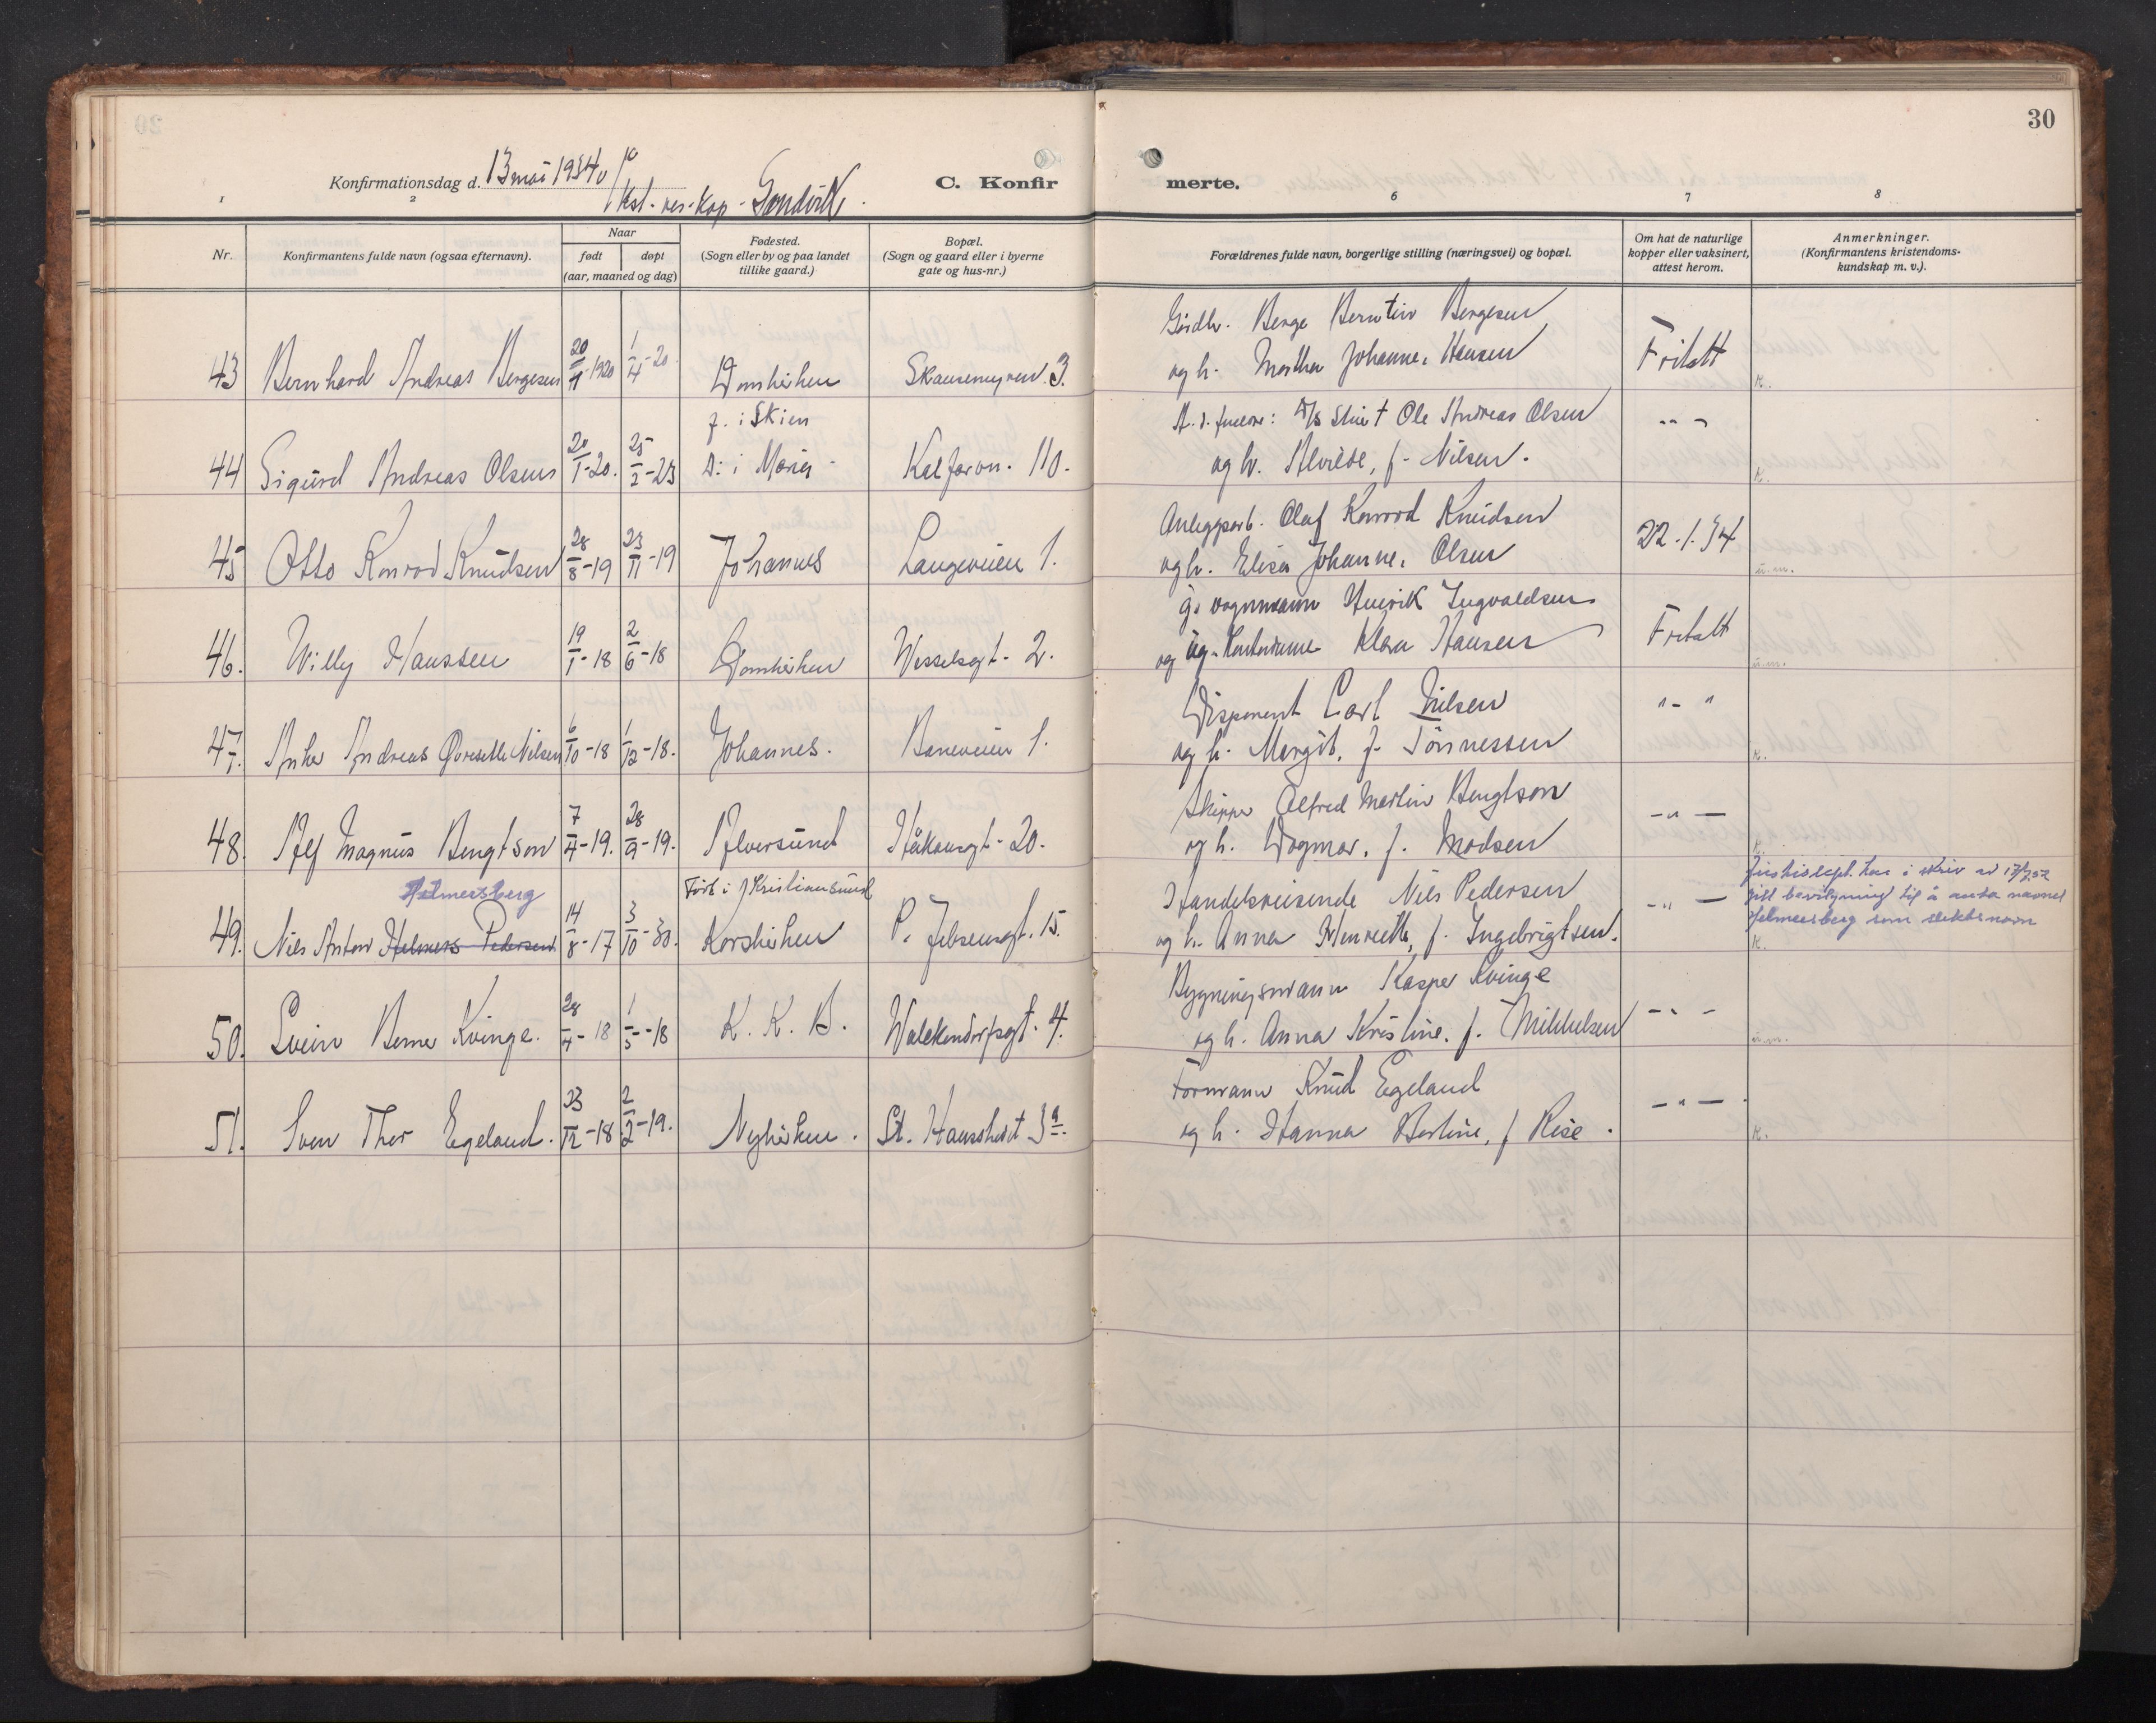 30
Konfirmationsdag d. 13 mai 1934 v/
kst. res. kap. Sandvik.
C. Konfirmerte.
1 2 6 7 8
Nr.
Konfirmantens fulde navn (ogsaa efternavn).
Naar
født døpt
(aar, maaned og dag)
Fødested.
(Sogn eller by og paa landet
tillike gaard.)
Bopæl.
(Sogn og gaard eller i byerne
gate og hus-nr.)
Forældrenes fulde navn, borgerlige stilling (næringsvei) og bopæl.
Om hat de naturlige
kopper eller vaksinert,
attest herom.
Anmerkninger.
(Konfirmantens kristendoms-
kundskap m. v.).
Berge Berntin Bergesen
43 Bernhard Andreas Bergesen 20/1-1920 1/4-20 Domkirken Skansemyren 3. og h. Martha Johanne, Hansen Fritatt k.
f. i Skien
Ole Andreas Olsen " -
44 Sigurd Andreas Olsen 20/1-20. 25/2-23 D: i Maria Kalfarvn. 110. og h. Alvilde, f. Nilsen. k.
Anleggsarb. Olaf Konrad Knudsen
45 Otto Konrad Knudsen 28/8-19 23/11-19 Johannes Langeveien 1. og h. Elise Johanne, Olsen 22.1.34 u.m.
g. vognmann Henrik Ingvaldsen
46. Willy Hanssen 19/1-18 2/6-18 Domkirken Wesselsgt. 2. og ug. Klara Hansen Fritatt u.m.
Disponent Carl Nilsen " - "
47. Andreas Nilsen 6/10-18 1/12-18. Johannes. Baneveien 1. og h. Margit, f. Tönnessen k.
Skipper Alfred Martin Bengtson
48. Alf Magnus Bengtson 7/4-19. 28/9-19. Alversund Håkonsgt. 20. og h. Dagmar, f. Madsen - " - k.
Helmersberg
Född i Kristiansund
Handelsreisende Nils Pedersen
Justisdept. har i skriv av 17/7.52
gitt bevilgning til å anta navnet
Helmersberg som slektsnavn
49. Nils Anton Helmers Pedersen 14/8-17 3/10-30. Korskirken P. Jebsensgt. 15. og h. Anna Henriette, f. Ingebrigtsen. - " - k.
Bygningsmann Kasper Kvinge
50. Svein Berner Kvinge. 28/4-18 1/5-18 K. K. B. Walckendorfsgt. 4. og h. Anna Kristine, f. Mikkelsen - " - u.m.
Formann Knud Egeland
51. Sven Thor Egeland. 23/12-18 2/2-19. Nykirken. St. Hansstredt 3a. og h. Hanna Bertine, f. Rise. - " - . k.